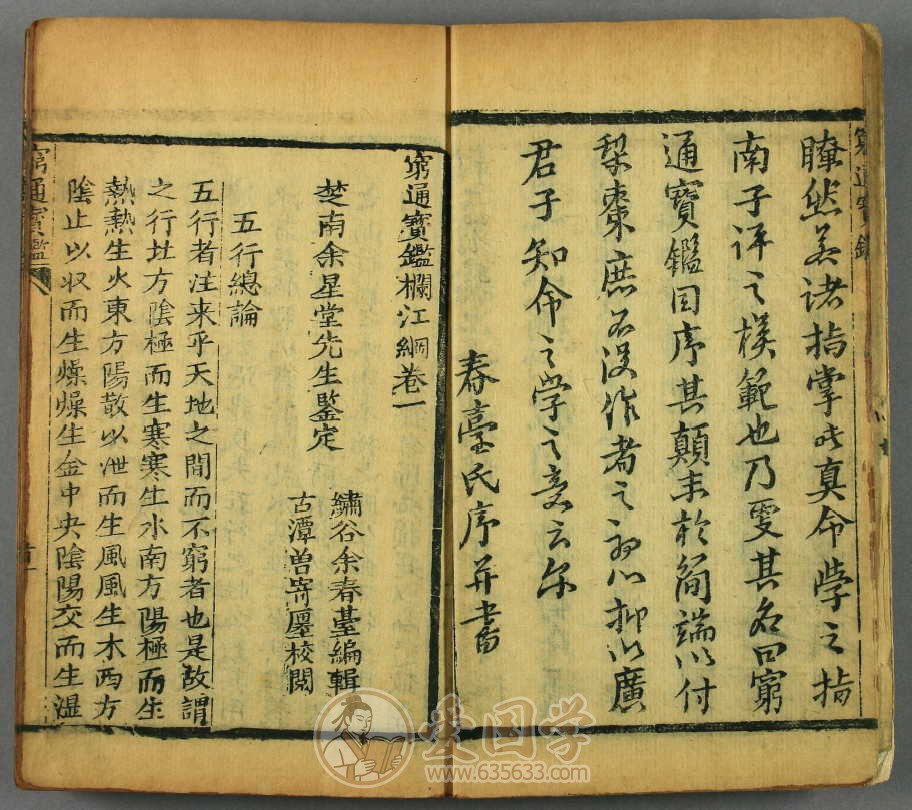 瞭然若諸指掌此真命學之指
南子評之模範也乃更其名曰窮
通寶鑑因序其顛末於簡端以付
梨棗庶不没作者之初心抑以廣
君子知命之學之意云尔
春臺氏序并書
窮通寶鑑欄江綱卷一
楚南余星堂先生鑒定
繡谷余春臺編輯
古潭曽寄廛校閲
五行總論
五行者注来乎天地之間而不窮者也是故謂
之行北方陰極而生寒寒生水南方陽極而生
熱熱生火東方陽散以泄而生風風生木西方
陰止以收而生燥燥生金中央陰陽交而生溫
窮通寶鑑
壹国学
www.635633.com